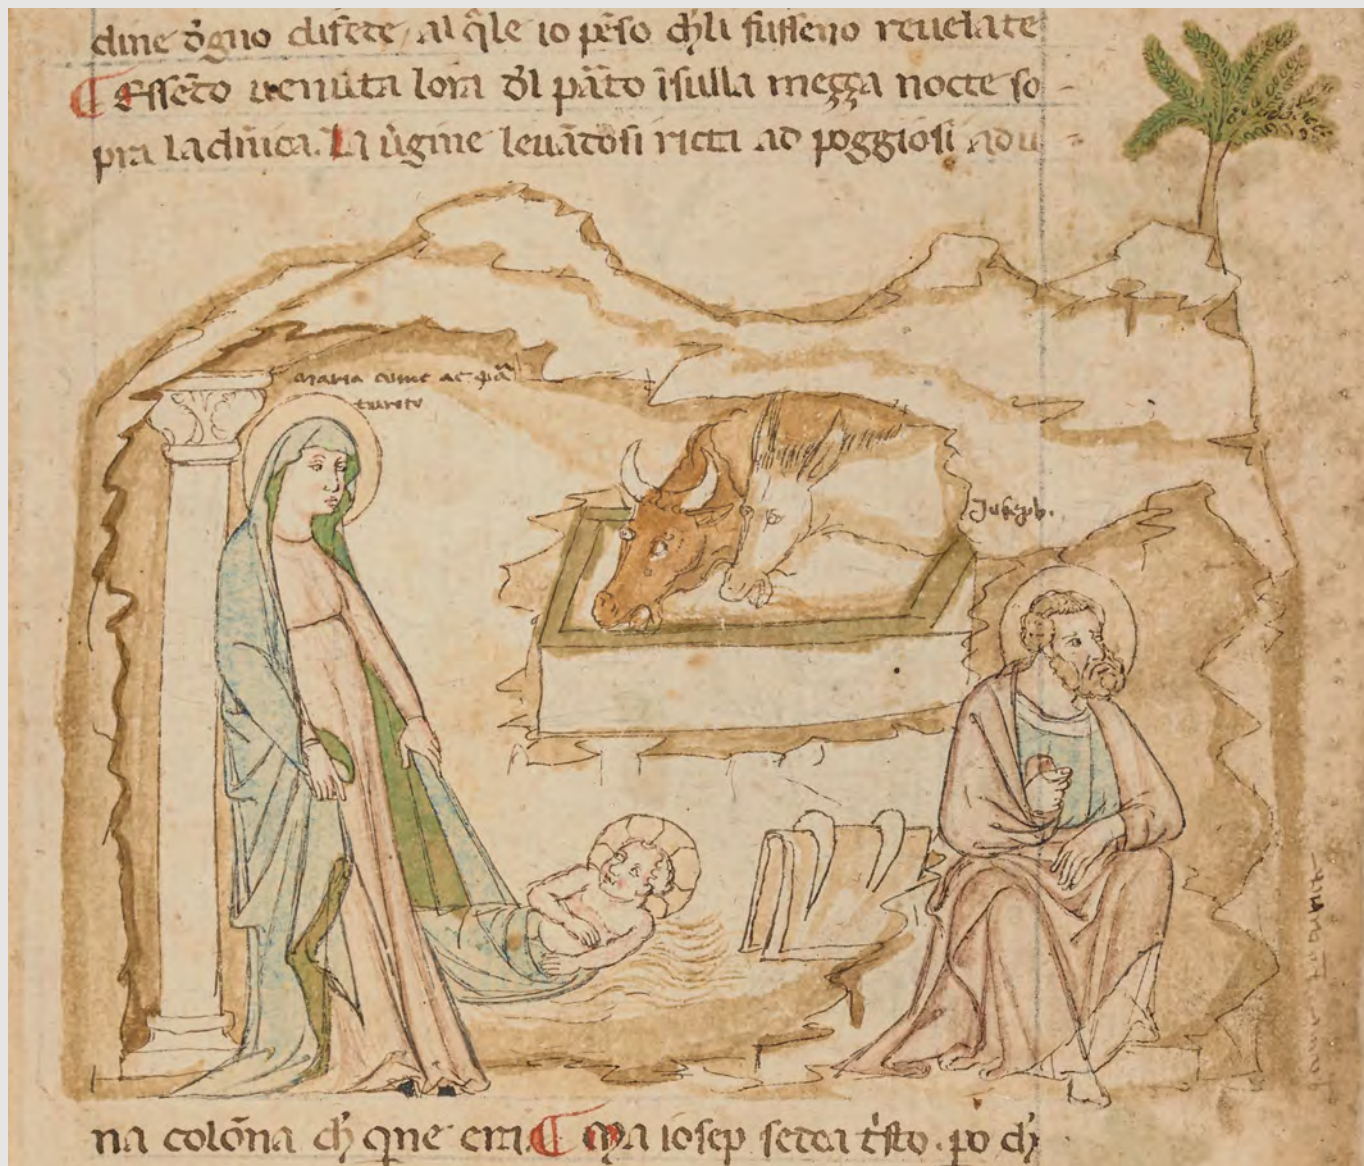 dine d̉gno disfete, al q̃le io pẽso ch̃li fusseno reuelate
Essẽdo uenuta lora d̉l pãto ĩsulla meçça nocte so
pra ladm̃ica. La u̓gine leuãdosi ricta ad poggiosi ad u
maria come
Joseph.
na colõna ch̃ q̓ne era. Ma iosep sedea t̓sto. po ch̃